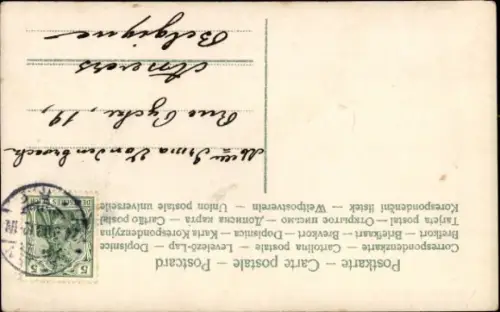 Postkarte — Carte postale — Postcard
Correspondenzkarte — Cartolina postale — Dopisnice
Brefkort — Briefkaart — Brevkort — Dopisnica — Karta Korespondencyjna
Tarjeta postal — Открытое письмо — Дописна карта — Cartão postal
Korespondenční lístek — Weltpostverein — Union postale universelle
Levelező-Lap
Mlle Irma Vandenbroeck
Rue Cyche, 19,
Anvers
Belgique
5
5